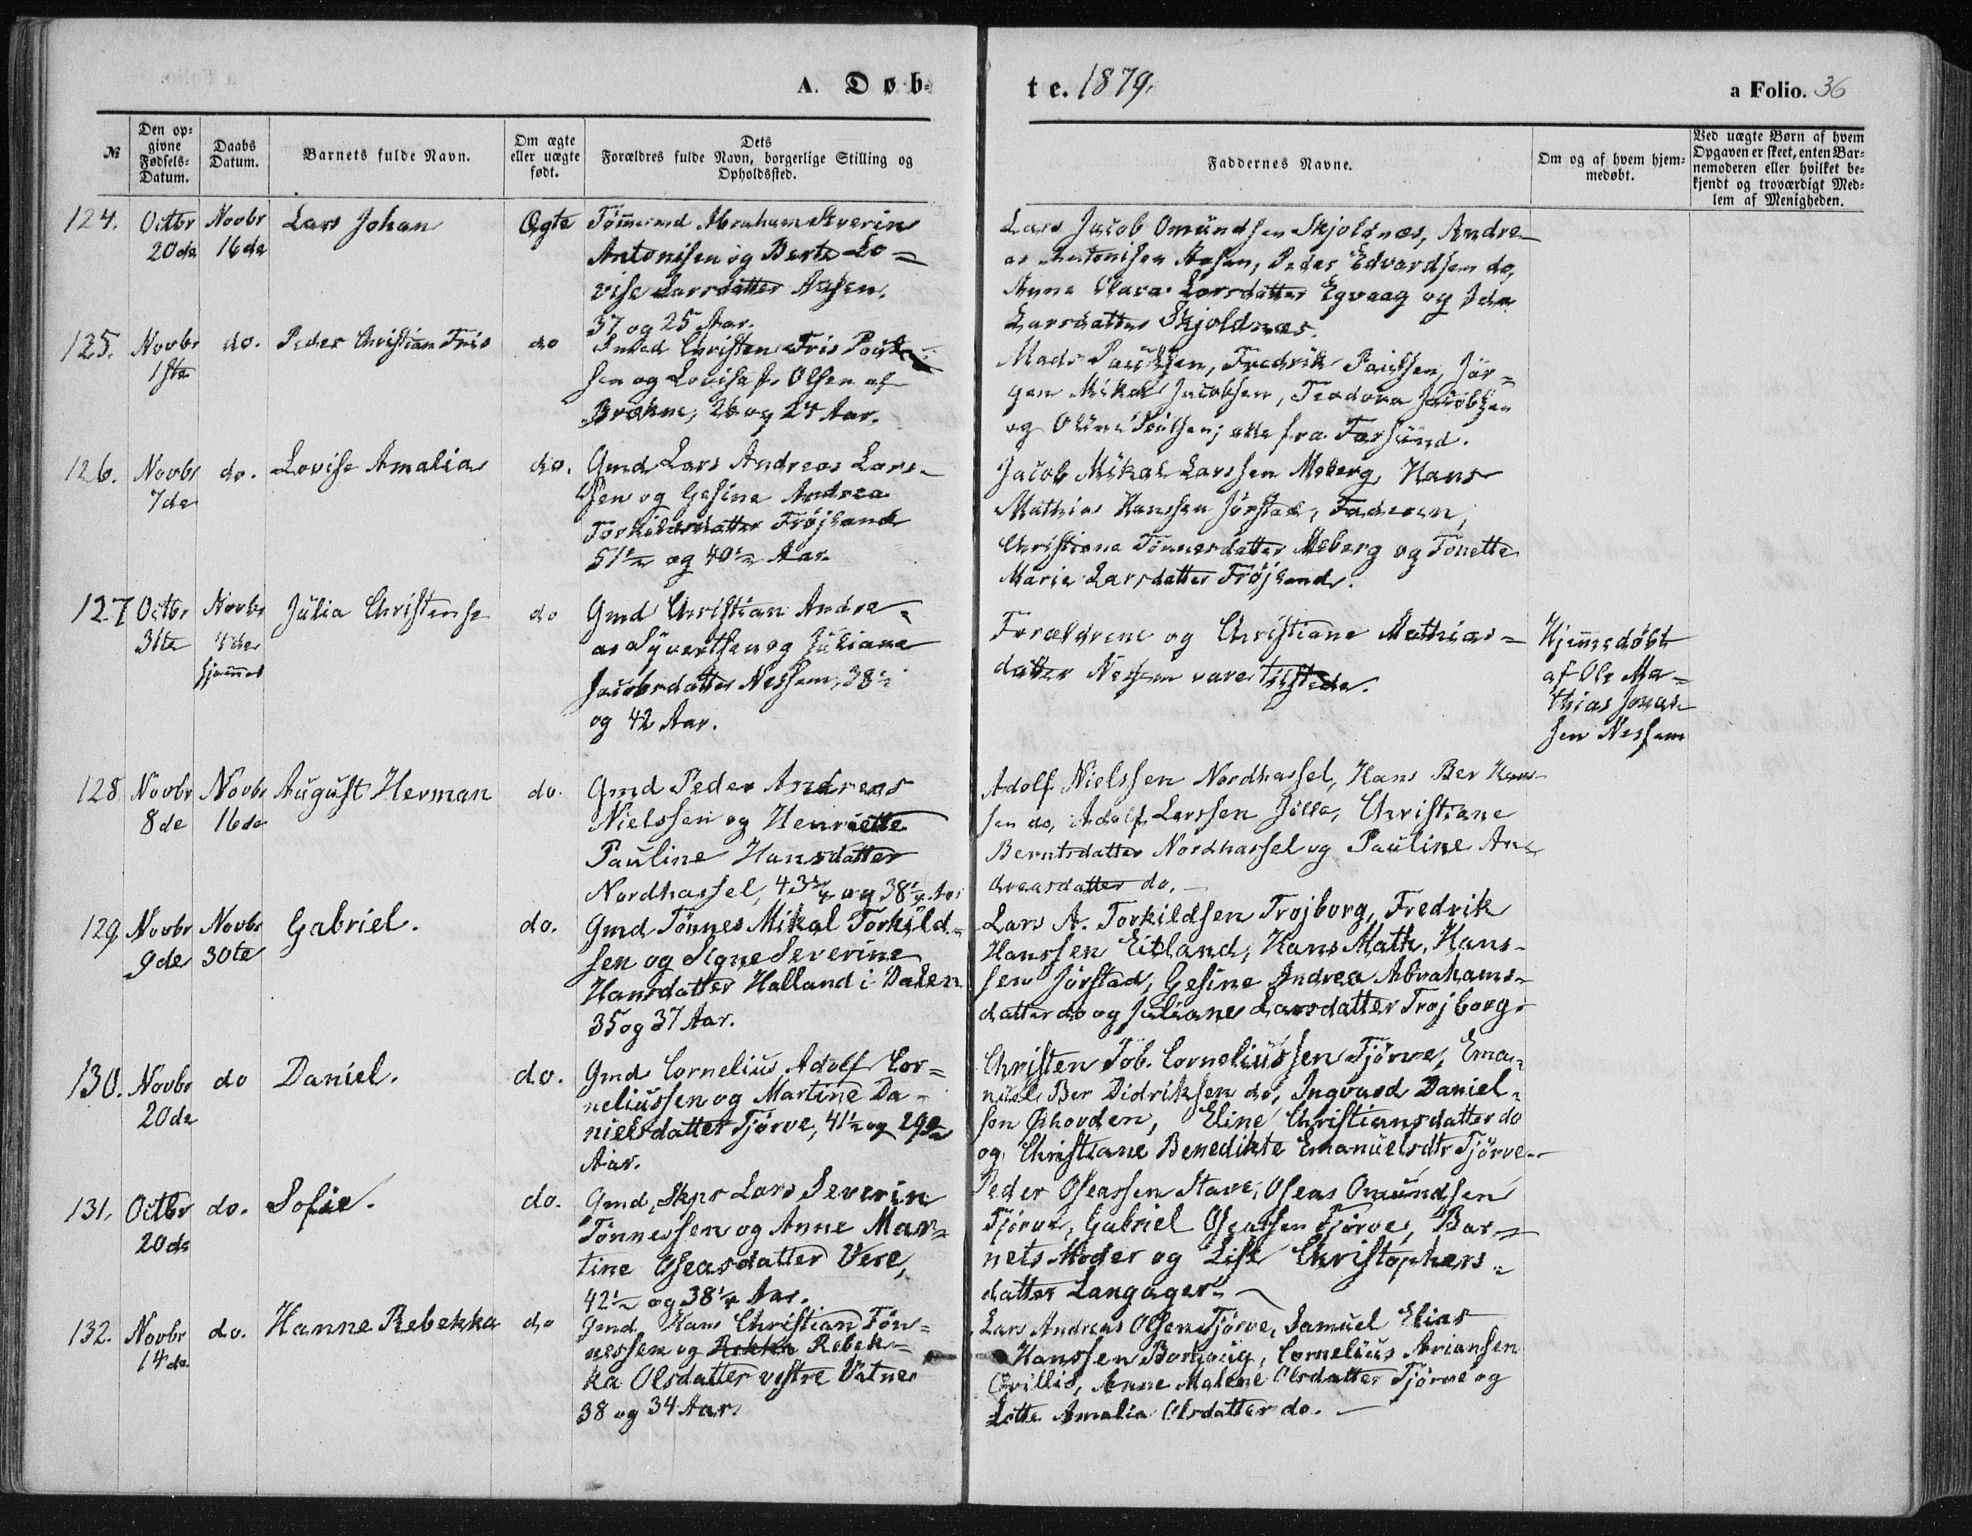 A. Døb-
te. 1879.
a Folio. 36
№
Den op-
givne
Fødsels-
Datum.
Daabs
Datum.
Barnets fulde Navn.
Om ægte
eller uægte
født.
Dets
Forældres fulde Navn, borgerlige Stilling og
Opholdssted.
Faddernes Navne.
Om og af hvem hjem-
medøbt.
Ved uægte Børn af hvem
Opgaven er skeet, enten Bar-
nemoderen eller hvilket be-
kjendt og troværdigt Med-
lem af Menigheden.
124. Octbr
20de
Novbr
16de
Lars Johan
Ægte
Tømmermd Abraham Severin
Antonisen og Berte Lo-
vise Larsdatter Aasen.
37 og 25 Aar.
Lars Jacob Omundsen Skjoldnæs, Andre-
as Antonisen Aasen, Peder Edvardsen do,
Anne Larsdatter Egvaag og Ida
Larsdatter Skjoldnæs.
125. Novbr
1ste
do.
Peder Christian Friis
do
Christen Friis
sen og Lovise f. Olsen af
26 og 24 Aar.
Mads Paulsen, Fredrik Paulsen, Jør-
gen Mikal Jacobsen, Teodora Jacobsen
og alle fra Farsund.
126. Novbr
7de
do.
Lovise Amalia
do.
Gmd Lars Andreas Lars-
sen og Gesine Andrea
Torkildsdatter Frøjland
51½ og 40½ Aar
Jacob Mikal Larssen Meberg, Hans
Mathias Hanssen Jørstad, Faderen,
Christiane Tønnesdatter Meberg og Tonette
Marie Larsdatter Frøjland.
127 Octbr
31te
Novbr
4de
hjemmet
Julia Christense
do
Gmd Christian Andre-
as Syvertsen og Juliane
Jacobsdatter Nesheim, 38½
og 42 Aar.
Forældrene og Christiane Mathias-
datter vare tilstede.
Hjemmedøbt
af Ole Ma-
thias Jonas-
sen
128 Novbr
8de
Novbr
16de
August Herman
do.
Gmd Peder Andreas
Nielssen og Henriette
Pauline Hansdatter
Nordhassel, 43¼ og 38½ Aar
Adolf Nielssen Nordhassel, Hans Ber Hans-
sen do, Adolf Larssen Jølle, Christiane
Berntsdatter Nordhassel og Pauline An-
dreasdatter do.
129 Novbr
9de
Novbr
30te
Gabriel.
do.
Gmd Tønnes Mikal Torkild-
sen og Signe Severine
Hansdatter Halland i Dalen
35 og 37 Aar.
Lars A. Torkildsen Trøjborg, Fredrik
Hanssen Eitland, Hans Math. Hans-
sen Jørstad, Gesine Andrea Abrahams-
datter do og Juliane Larsdatter Trøjborg.
130. Novbr
20de
do
Daniel.
do.
Gmd Cornelius Adolf Cor-
neliussen og Martine Da-
nielsdatter Tjørve, 41½ og 29
Aar.
Christen Tob. Corneliussen Tjørve, Ema-
nuel Ber Didriksen do, Ingvard Daniel-
sen Ørhovden, Eline Christiansdatter do
og Christiane Benedikte Emanuelsdtr Tjørve.
131. Octbr
20de
do.
Sofie.
do.
Gmd, Skpr Lars Severin
Tønnessen og Anne Mar-
tine Oseasdatter Vere,
42½ og 38¼ Aar.
Peder Oseassen Stave, Oseas Omundsen
Tjørve, Gabriel Oseassen Tjørve, Bar-
nets Moder og Lise Christophers-
datter Langager
132. Novbr
14de
do.
Hanne Rebekka
do
Gmd, Hans Christian Tøn-
nessen og Rebek-
ka Olsdatter vestre Vatne
38 og 34 Aar.
Lars Andreas Olsen Tjørve, Samuel Elias
Hanssen Borhaug, Cornelius Ariansen
Qvillid, Anne Malene Olsdatter Tjørve og
Lotte Amalia Olsdatter do.